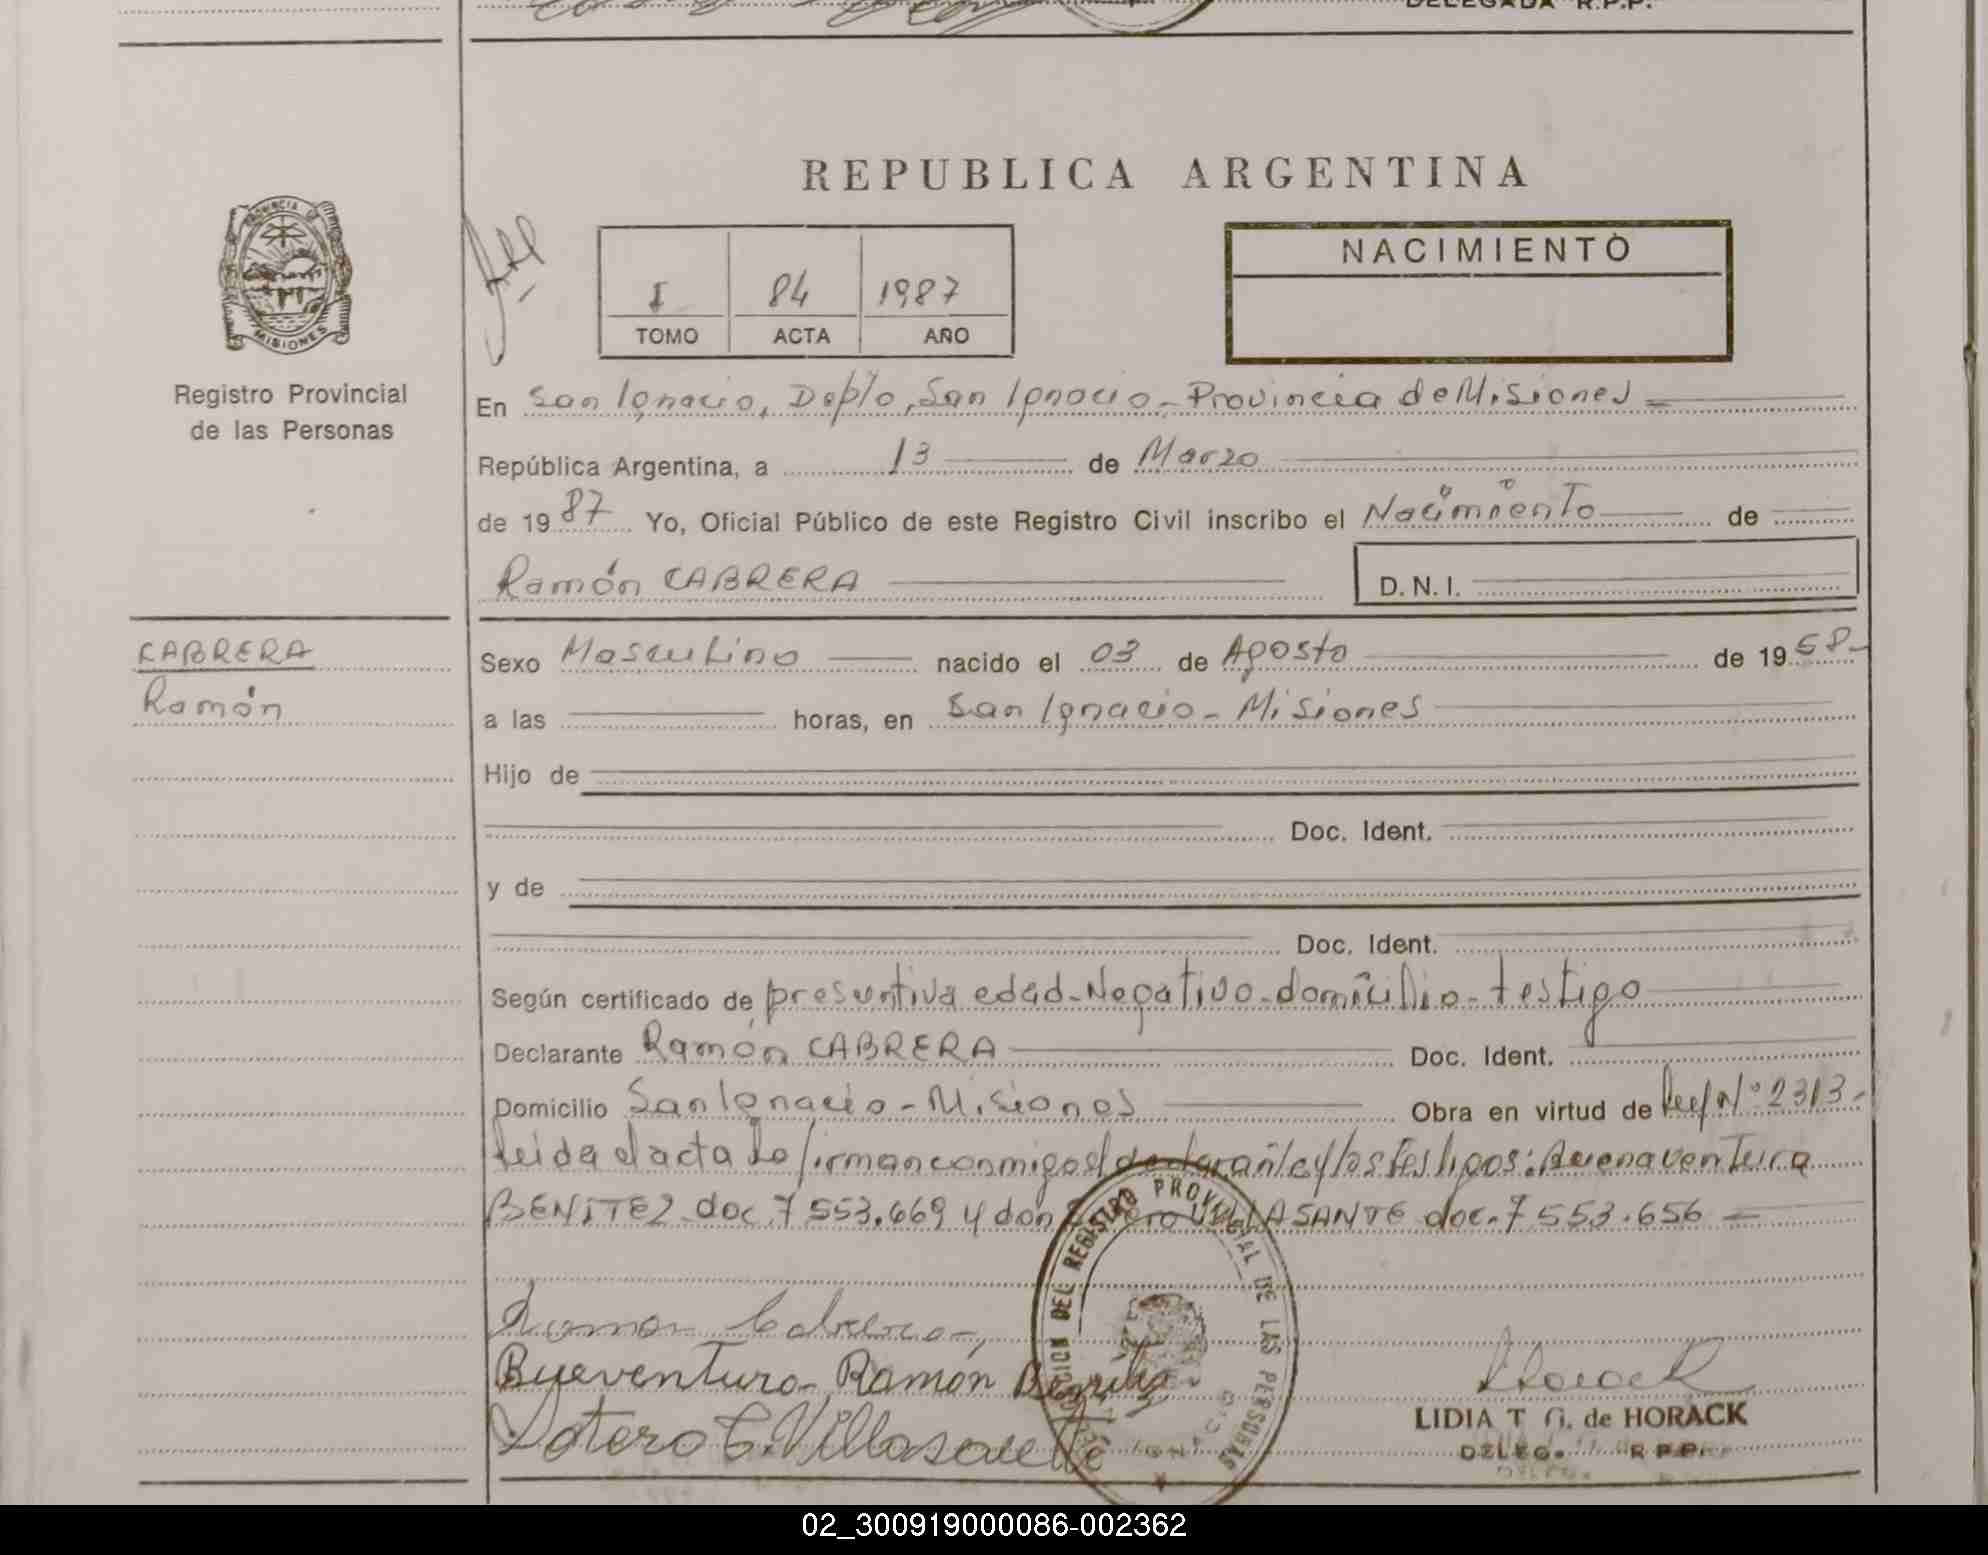 DELEGADA R.P.P.
REPUBLICA ARGENTINA
PROVINCIA DE
MISIONES
Registro Provincial
de las Personas
I 84 1987
TOMO ACTA AÑO
NACIMIENTO
En San Ignacio, Depto, San Ignacio - Provincia de Misiones -
República Argentina, a 13 de Marzo
de 1987 Yo, Oficial Público de este Registro Civil inscribo el Nacimiento de
Ramón CABRERA D.N.I.
CABRERA
Ramón
Sexo Masculino nacido el 03 de Agosto de 1958-
a las horas, en San Ignacio - Misiones
Hijo de
Doc. Ident.
y de
Doc. Ident.
Según certificado de presuntiva edad-Negativo-domicilio-testigo
Declarante Ramón CABRERA Doc. Ident.
Domicilio San Ignacio - Misiones Obra en virtud de N° 2313-
leida el acta la firman conmigo el declarante y los testigos: Buenaventura
BENITEZ doc. 7 553.669 y don VILLASANTE doc. 7 553.656 -
Ramon Cabrera
Bueventura Ramón Benitez
Sotero C. Villasante
DEL REGISTRO PROVINCIAL DE LAS PERSONAS
Horack
LIDIA T G. de HORACK
DELEG. R.P.P.
02_300919000086-002362